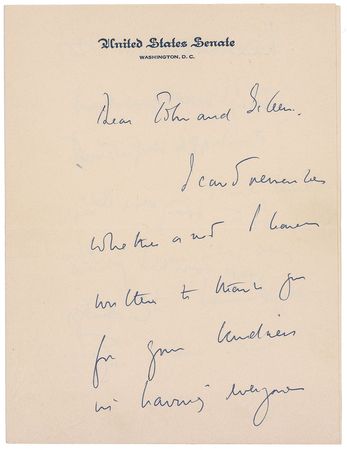 United States Senate
WASHINGTON, D.C.
Dear John and Eileen.
I can't remember
whether or not I have
written to thank you
for your kindness
in having everyone